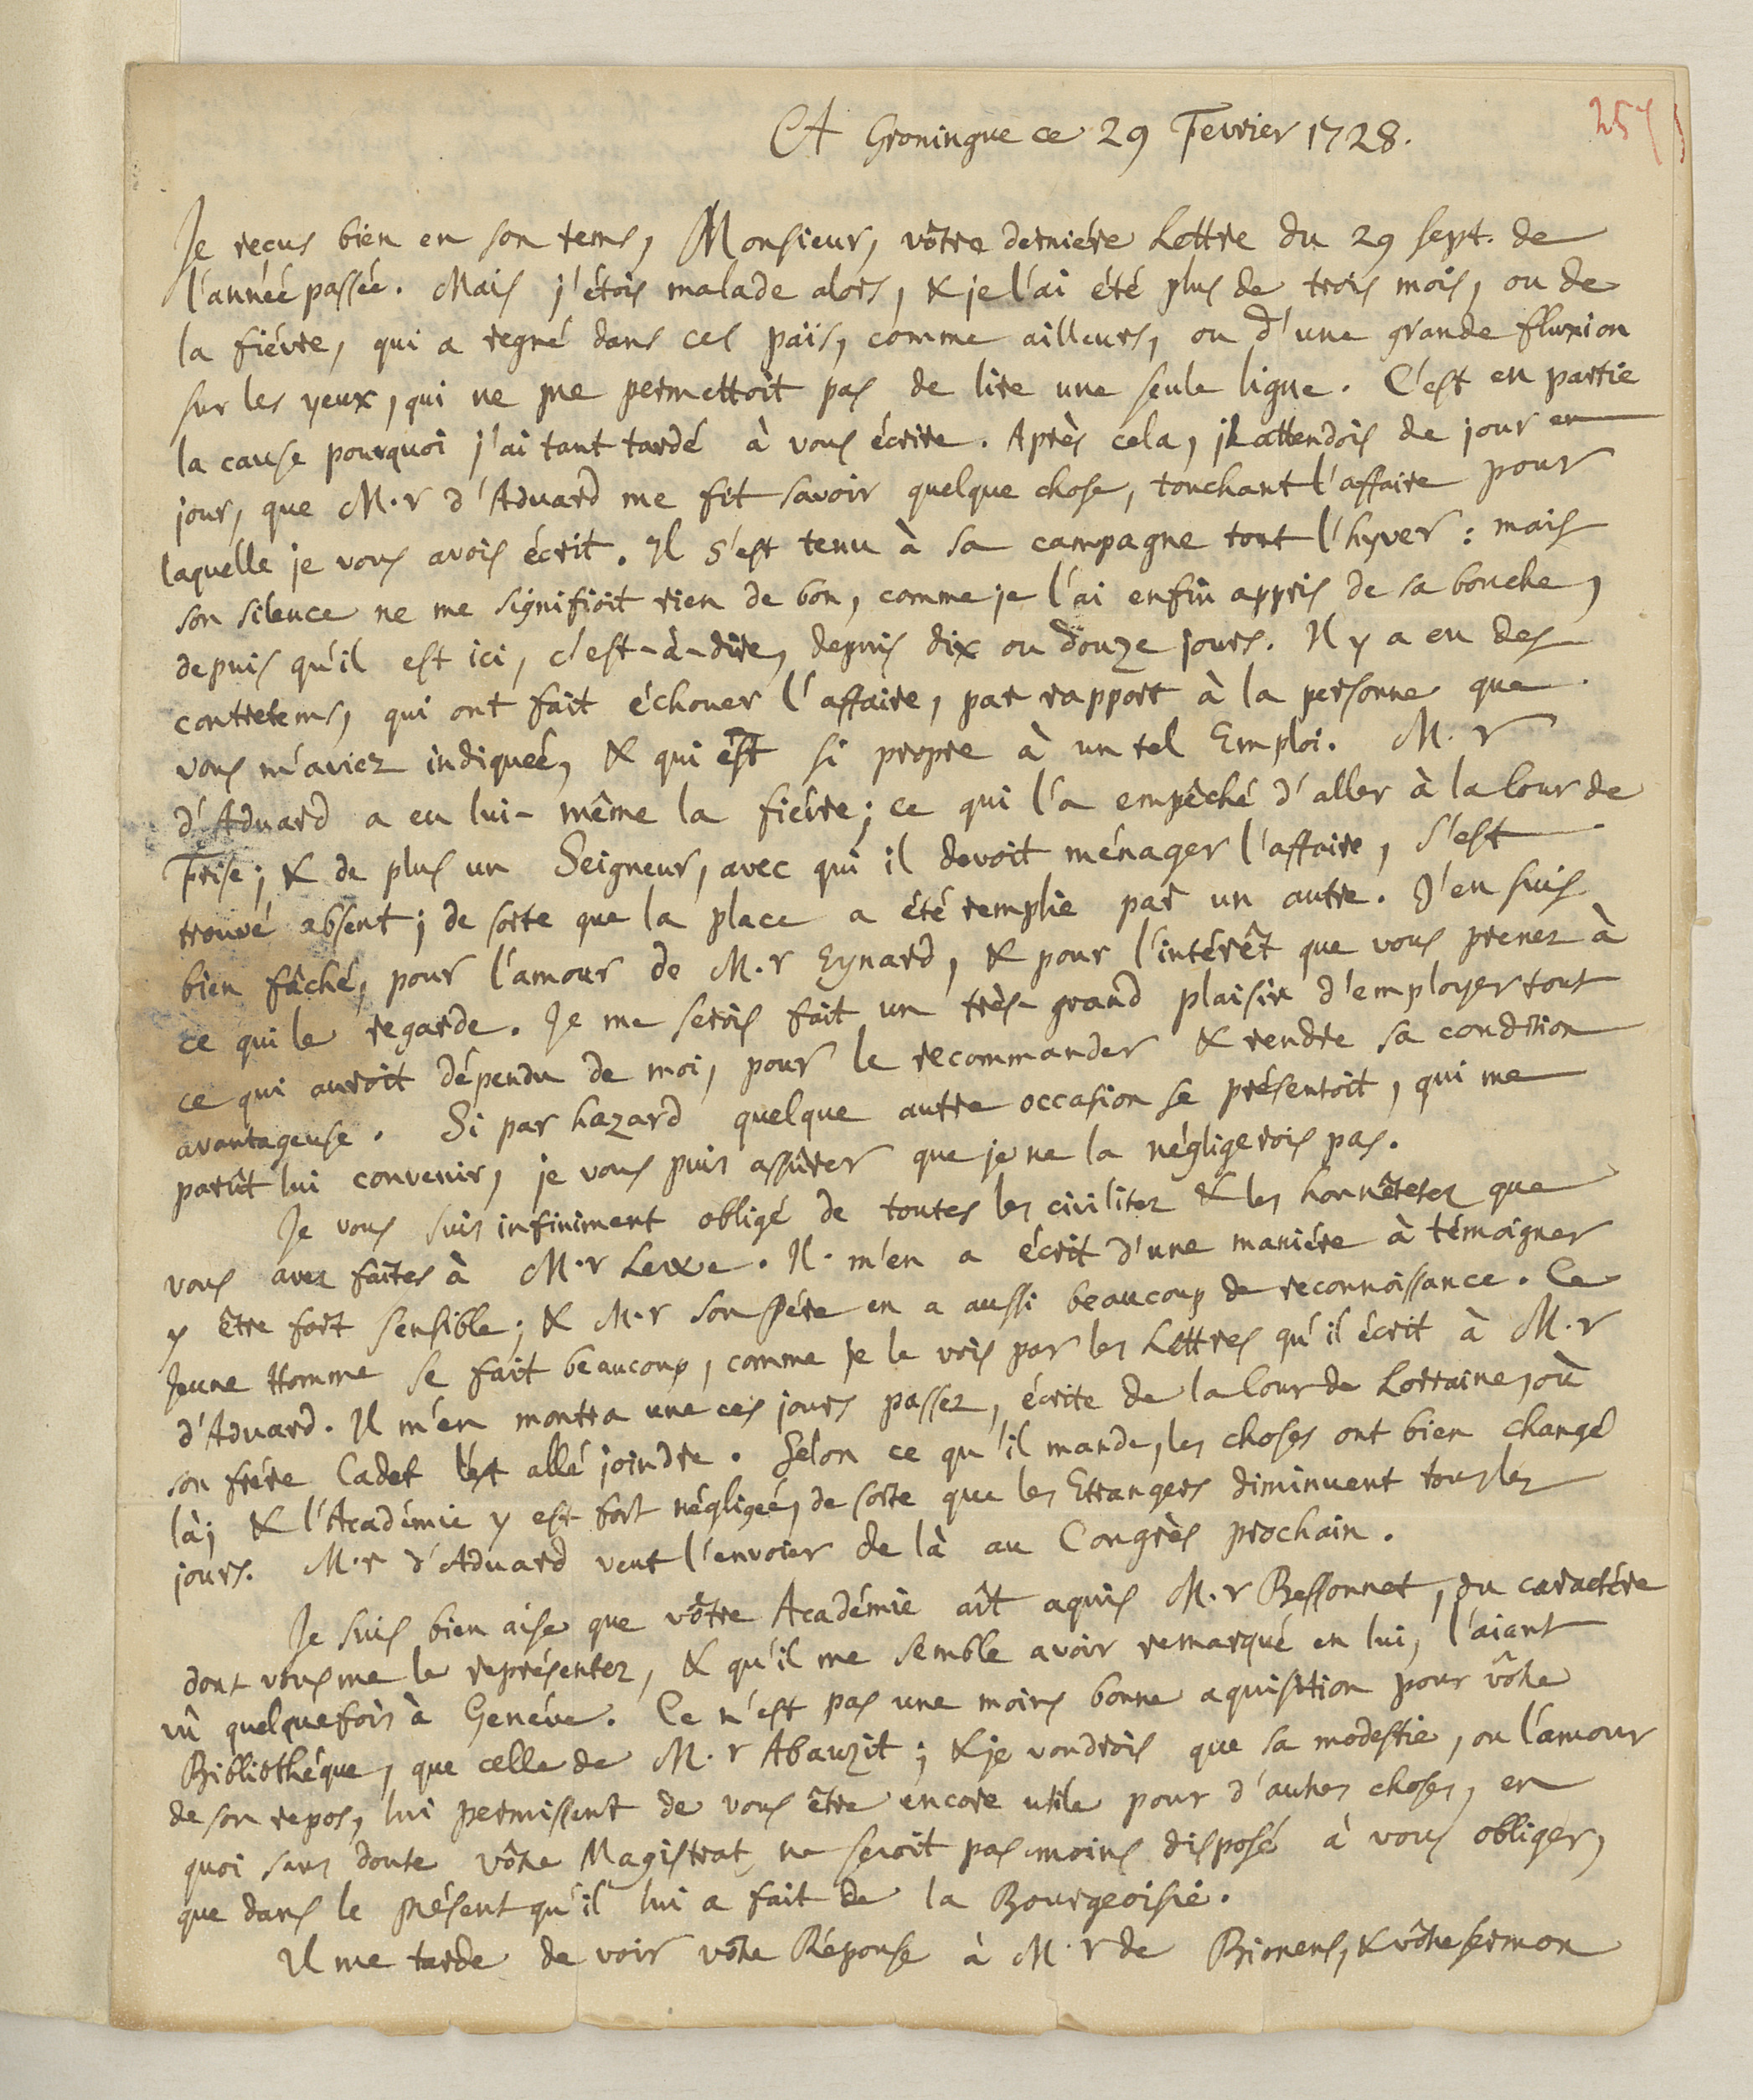 A Groningue ce 29 Fevrier 1728.
257
Je reçus bien en son tems, Monsieur, vôtre derniére Lettre du 29 Sept. de
l'année passée. Mais j'étois malade alors, & je l'ai été plus de trois mois, ou de
la fiévre, qui a regné dans ces païs, comme ailleurs, ou d'une grande fluxion
sur les yeux, qui ne me permettoit pas de lire une seule ligne. C'est en partie
la cause pourquoi j'ai tant tardé à vous écrire. Après cela, j'attendois de jour en
jour, que M.r d'Aduard me fit savoir quelque chose, touchant l'affaire pour
laquelle je vous avois écrit. Il s'est tenu à sa campagne tout l'hyver: mais
son silence ne me signifioit rien de bon, comme je l'ai enfin appris de sa bouche,
depuis qu'il est ici, c'est-à-dire, depuis dix ou douze jours. Il y a eu des
contretems, qui ont fait échouer l'affaire, par rapport à la personne que
vous m'aviez indiqueé, & qui est si propre à un tel Emploi. M.r
d'Aduard a eu lui-même la fiévre; ce qui l'a empêché d'aller à la Cour de
Frise; & de plus un Seigneur, avec qui il devoit ménager l'affaire, s'est
trouvé absent; de sorte que la place a été remplie par un autre. J'en suis
bien fâché, pour l'amour de M.r Eynard, & pour l'intérêt que vous prenez à
ce qui le regarde. Je me serois fait un très-grand plaisir d'employer tout
ce qui auroit dépendu de moi, pour le recommander & rendre sa condition
avantageuse. Si par hazard quelque autre occasion se présentoit, qui me
parût lui convenir, je vous puis assûrer que je ne la négligerois pas.
Je vous suis infiniment obligé de toutes les civilitez & les honnêtetez que
vous avez faites à M.r Lewe. Il m'en a écrit d'une maniére à témoigner
y être fort sensible; & M.r son Pére en a aussi beaucoup de reconnoissance. Ce
Jeune Homme se fait beaucoup, comme je le vois par les Lettres qu'il écrit à M.r
d'Aduard. Il m'en montra une ces jours passez, écrite de la Cour de Lorraine, où
son frére Cadet l'est allé joindre. Selon ce qu'il mande, les choses ont bien changé
là; & l'Académie y est fort négligeé, de sorte que les Etrangers diminuent tous les
jours. M.r d'Aduard veut l'envoier de là au Congrès prochain.
Je suis bien aise que vôtre Académie aît aquis M.r Bessonnet, du caractére
dont vous me le représentez, & qu'il me semble avoir remarqué en lui, l'aiant
vû quelquefois à Genéve. Ce n'est pas une moins bonne aquisition pour vôtre
Bibliothéque, que celle de M.r Abauzit; & je voudrois que sa modestie, ou l'amour
de son repos, lui permissent de vous être encore utile pour d'autres choses, en
quoi sans doute vôtre Magistrat ne seroit pas moins disposé à vous obliger,
que dans le présent qu'il lui a fait de la Bourgeoisie.
Il me tarde de voir vôtre Réponse à M.r de Bionens, & vôtre Sermon